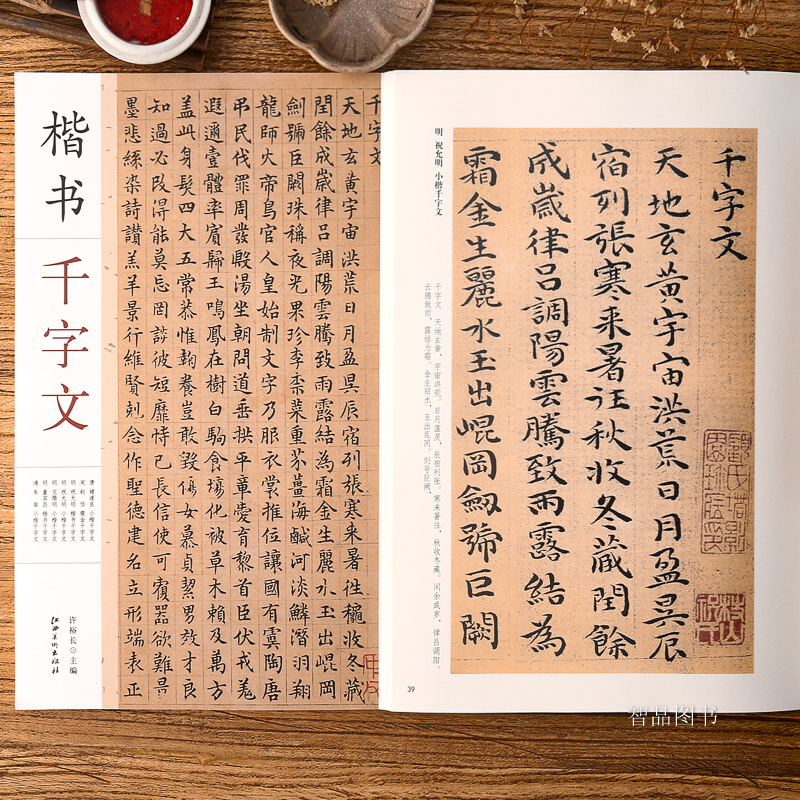 楷书
千字文
唐 褚遂良 小楷千字文
宋 赵 佶 瘦金千字文
明 祝允明 楷书千字文
明 祝允明 小楷千字文
明 文徵明 小楷千字文
明 董其昌 楷书千字文
清 朱 小楷千字文
许裕长◎主编
江西美术出版社
千字文
天地玄黄宇宙洪荒日月盈昃辰宿列張寒来暑徃穐收冬藏
閏餘成嵗律吕調陽雲騰致雨露結為霜金生麗水玉出崐岡
劍號巨闕珠稱夜光果珍李柰菜重芥薑海鹹河淡鱗潛羽翔
龍師火帝鳥官人皇始制文字乃服衣裳推位讓國有虞陶唐
弔民伐罪周發殷湯坐朝問道垂拱平章愛育黎首臣伏戎羌
遐邇壹體率賓歸王鳴鳳在樹白駒食塲化被草木賴及萬方
盖此身髮四大五常恭惟鞠養豈敢毁傷女慕貞絜男效才良
知過必改得能莫忘罔談彼短靡恃己長信使可覆器欲難量
墨悲絲染詩讚羔羊景行維賢剋念作聖德建名立形端表正
千字文
天地玄黄宇宙洪荒日月盈昃辰
宿列張寒来暑往秋收冬藏閏餘
成嵗律吕調陽雲騰致雨露結為
霜金生麗水玉出崐岡劒號巨闕
明 祝允明 小楷千字文
千字文 天地玄黄，宇宙洪荒。日月盈昃，辰宿列张。寒来暑往，秋收冬藏。闰余成岁，律吕调阳。
云腾致雨，露结为霜。金生丽水，玉出昆冈。剑号巨阙，
39
智品图书